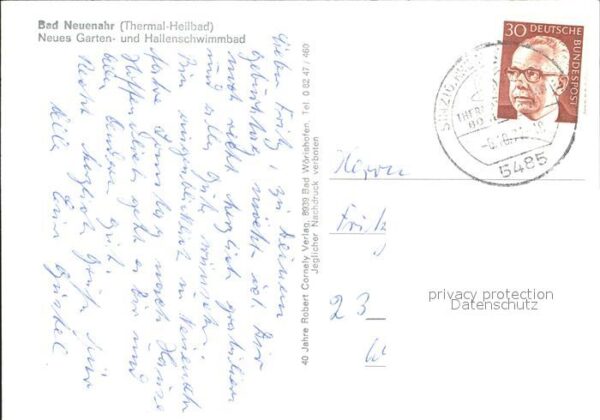 Bad Neuenahr (Thermal-Heilbad)
Neues Garten- und Hallenschwimmbad
Lieber Fritz, zu Deinem
Geburtstag möcht ich Dir
noch recht herzlich gratulieren
und alles Gute wünschen.
Bin augenblicklich in Neuenahr
fahre Sonntag nach Hause
Hoffentlich geht es Dir und
allen Andern gut.
Recht herzliche Grüße für
alle Eure
40 Jahre Robert Cornely Verlag, 8939 Bad Wörishofen, Tel. 0 82 47 / 460
Jeglicher Nachdruck verboten
30 DEUTSCHE BUNDESPOST
5485
Herrn
Fritz
23
privacy protection
Datenschutz